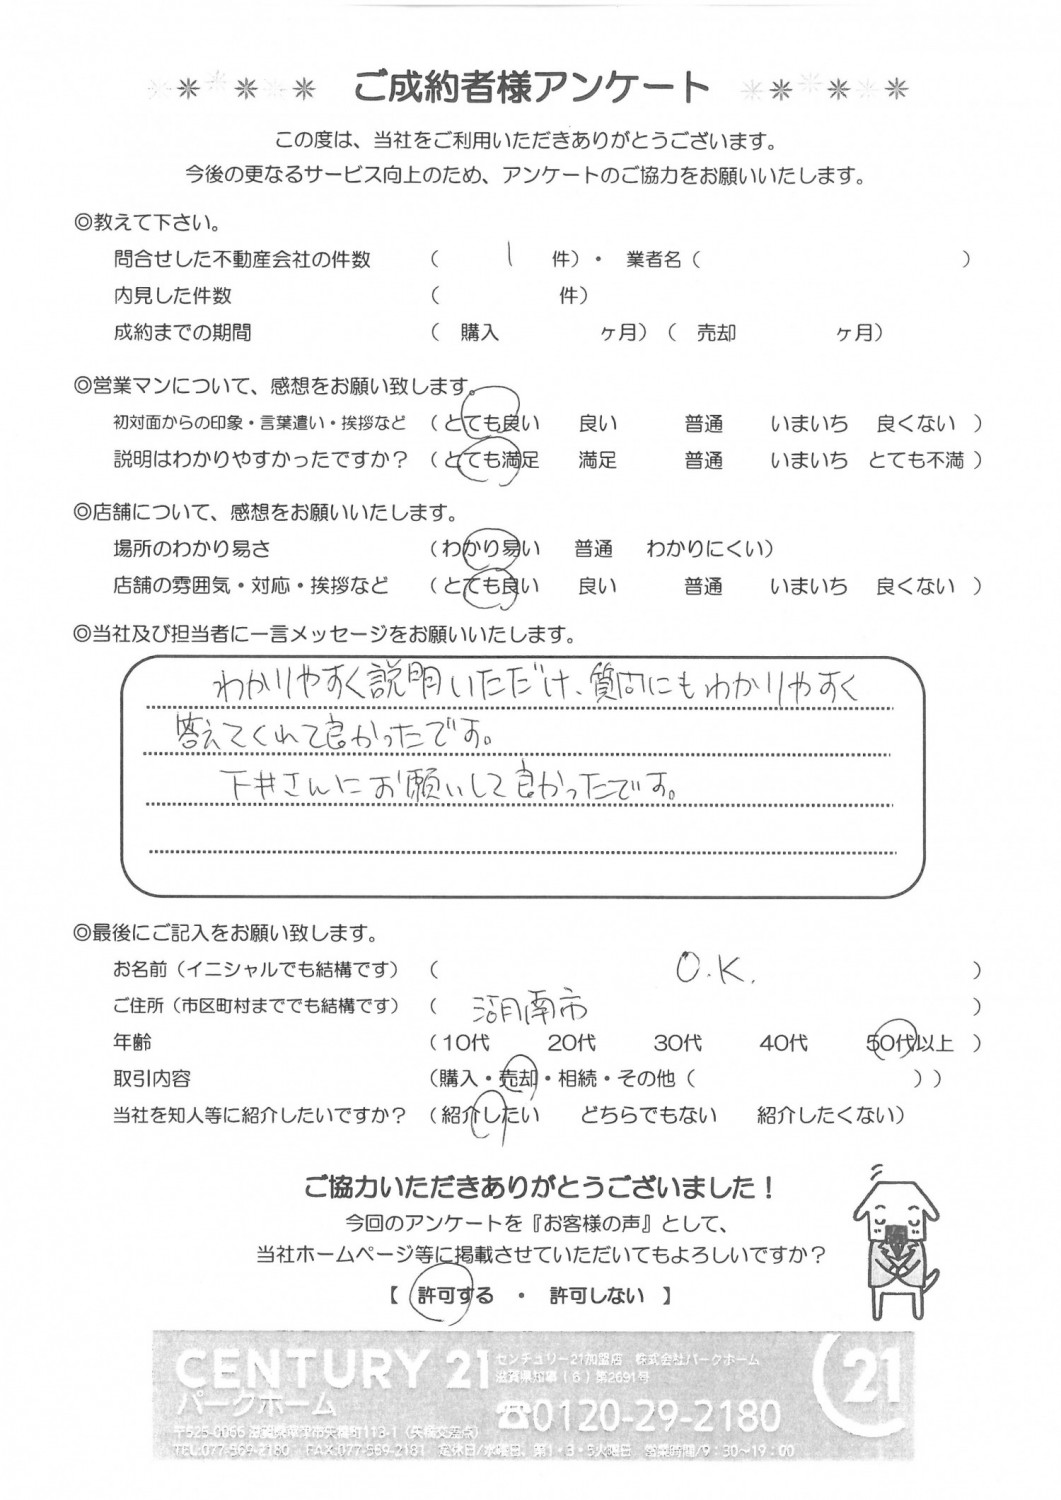 ご成約者様アンケート
この度は、当社をご利用いただきありがとうございます。
今後の更なるサービス向上のため、アンケートのご協力をお願いいたします。
◎教えて下さい。
問合せした不動産会社の件数 ( 1 件)・ 業者名 ( )
内見した件数 ( 件)
成約までの期間 ( 購入 ヶ月) ( 売却 ヶ月)
◎営業マンについて、感想をお願い致します。
初対面からの印象・言葉遣い・挨拶など (とても良い 良い 普通 いまいち 良くない )
説明はわかりやすかったですか? (とても満足 満足 普通 いまいち とても不満 )
◎店舗について、感想をお願いいたします。
場所のわかり易さ (わかり易い 普通 わかりにくい)
店舗の雰囲気・対応・挨拶など (とても良い 良い 普通 いまいち 良くない )
◎当社及び担当者に一言メッセージをお願いいたします。
わかりやすく説明いただけ、質問にもわかりやすく
答えてくれて良かったです。
下井さんにお願いして良かったです。
◎最後にご記入をお願い致します。
お名前(イニシャルでも結構です) ( O.K. )
ご住所(市区町村まででも結構です) ( 湖南市 )
年齢 (10代 20代 30代 40代 50代以上 )
取引内容 (購入・売却・相続・その他 ( ) )
当社を知人等に紹介したいですか? (紹介したい どちらでもない 紹介したくない)
ご協力いただきありがとうございました!
今回のアンケートを『お客様の声』として、
当社ホームページ等に掲載させていただいてもよろしいですか?
【 許可する ・ 許可しない 】
CENTURY 21 センチュリー21加盟店 株式会社パークホーム
滋賀県知事(6)第2691号
パークホーム ☎0120-29-2180 21
〒525-0066 滋賀県草津市矢橋町113-1 (矢橋交差点)
TEL:077-569-2180 FAX:077-569-2181 定休日/水曜日、第1・3・5火曜日 営業時間/9:30~19:00